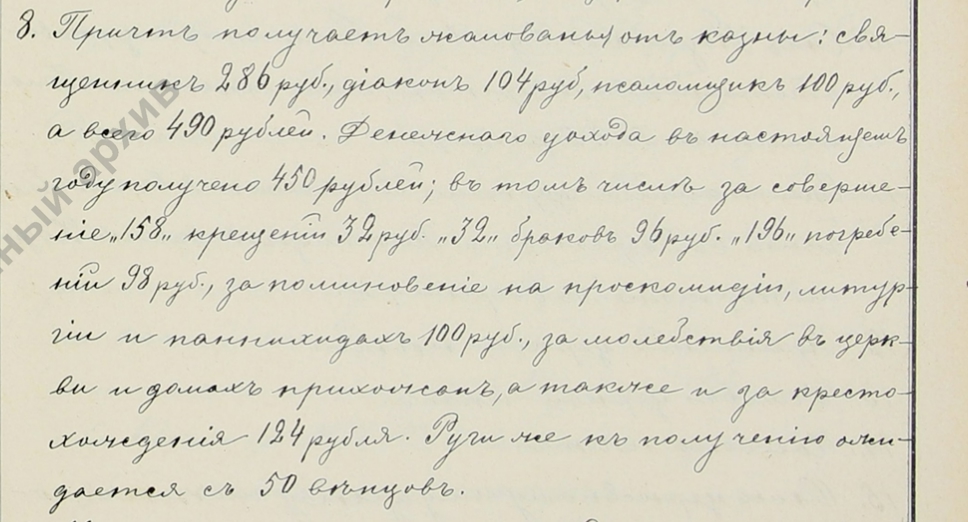 8. Причтъ получаетъ жалованья отъ казны: свя-
щенникъ 286 руб., діаконъ 104 руб, псаломщикъ 100 руб.,
а всего 490 рублей. Денежнаго дохода въ настоящемъ
году получено 450 рублей; въ томъ числѣ за соверше-
ніе „158„ крещеній 32 руб. „32„ браковъ 96 руб. „196„ погребе-
ній 98 руб., за поминовеніе на проскомидіи, литур-
гіи и паннихидахъ 100 руб., за молебствія въ церк-
ви и домахъ прихожанъ, а также и за кресто-
хожденія 124 рубля. Руги же къ полученію ожи-
дается съ 50 вѣнцовъ.
ный архив